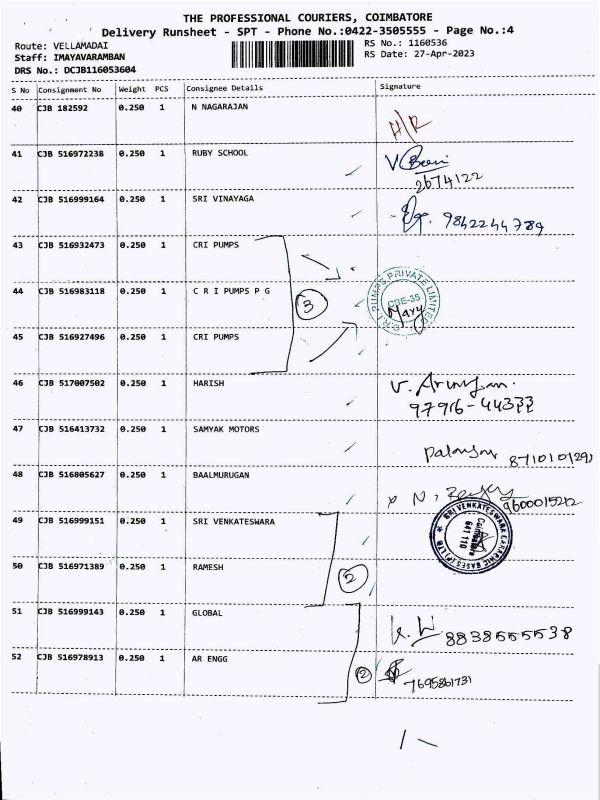 THE PROFESSIONAL COURIERS, COIMBATORE
Delivery Runsheet - SPT - Phone No.:0422-3505555 - Page No.:4
Route: VELLAMADAI
RS No.: 1160536
Staff: IMAYAVARAMBAN
RS Date: 27-Apr-2023
DRS No.: DCJB116053604
S No Consignment No Weight PCS Consignee Details Signature
40 CJB 182592 0.250 1 N NAGARAJAN
H/R
41 CJB 516972238 0.250 1 RUBY SCHOOL
2674122
42 CJB 516999164 0.250 1 SRI VINAYAGA
9842244789
43 CJB 516932473 0.250 1 CRI PUMPS
44 CJB 516983118 0.250 1 C R I PUMPS P G
3
C.R.I. PUMPS PRIVATE LIMITED
CBE-35
Mary
45 CJB 516927496 0.250 1 CRI PUMPS
46 CJB 517007502 0.250 1 HARISH
47 CJB 516413732 0.250 1 SAMYAK MOTORS
48 CJB 516805627 0.250 1 BAALMURUGAN
49 CJB 516999151 0.250 1 SRI VENKATESWARA
SRI VENKATESWARA CARBONIC GASES (P) LTD
Coimbatore
641 110
50 CJB 516971389 0.250 1 RAMESH
2
51 CJB 516999143 0.250 1 GLOBAL
8838555538
52 CJB 516978913 0.250 1 AR ENGG
2
7695861731